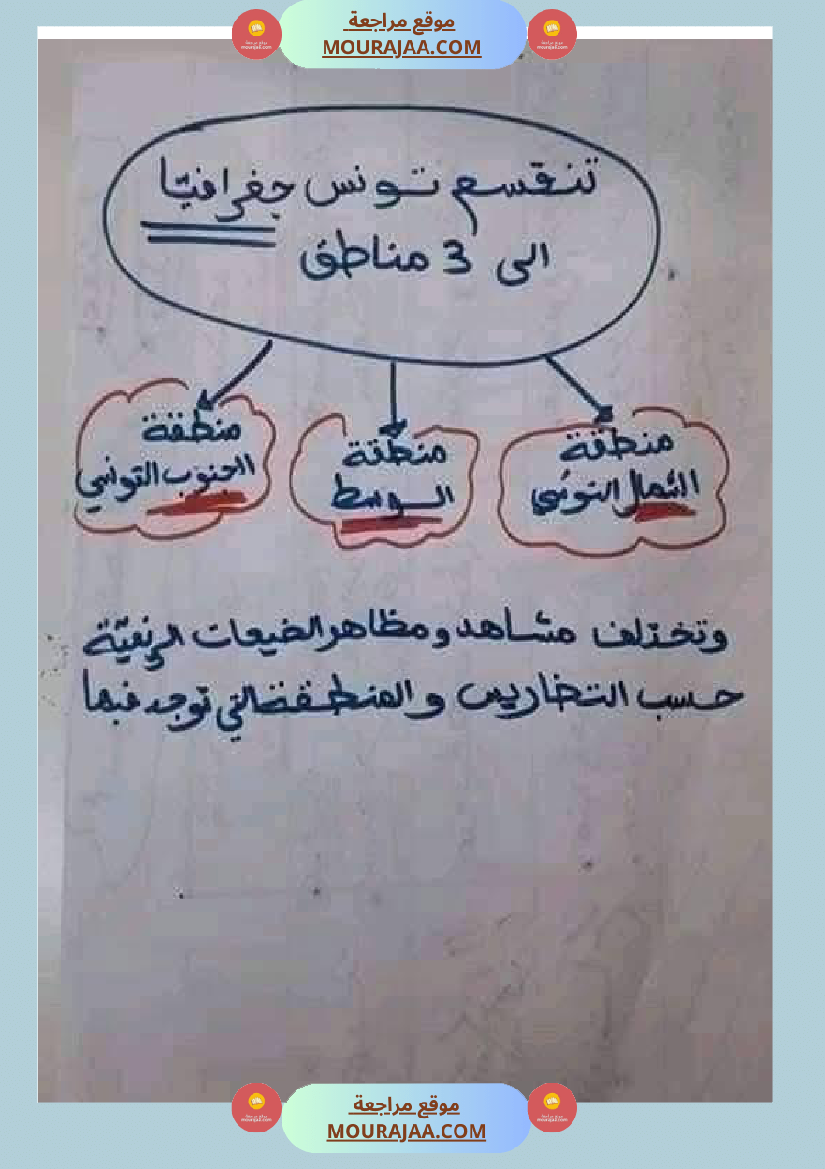 موقع مراجعة
MOURAJAA.COM
تنقسم تونس جغرافيّا
الى 3 مناطق
منطقة
الشمال التونسي
منطقة
الوسط
منطقة
الجنوب التونسي
وتختلف مشاهد ومظاهر الضيعات الريفيّة
حسب التضاريس والمنطقة التي توجد فيها
موقع مراجعة
MOURAJAA.COM